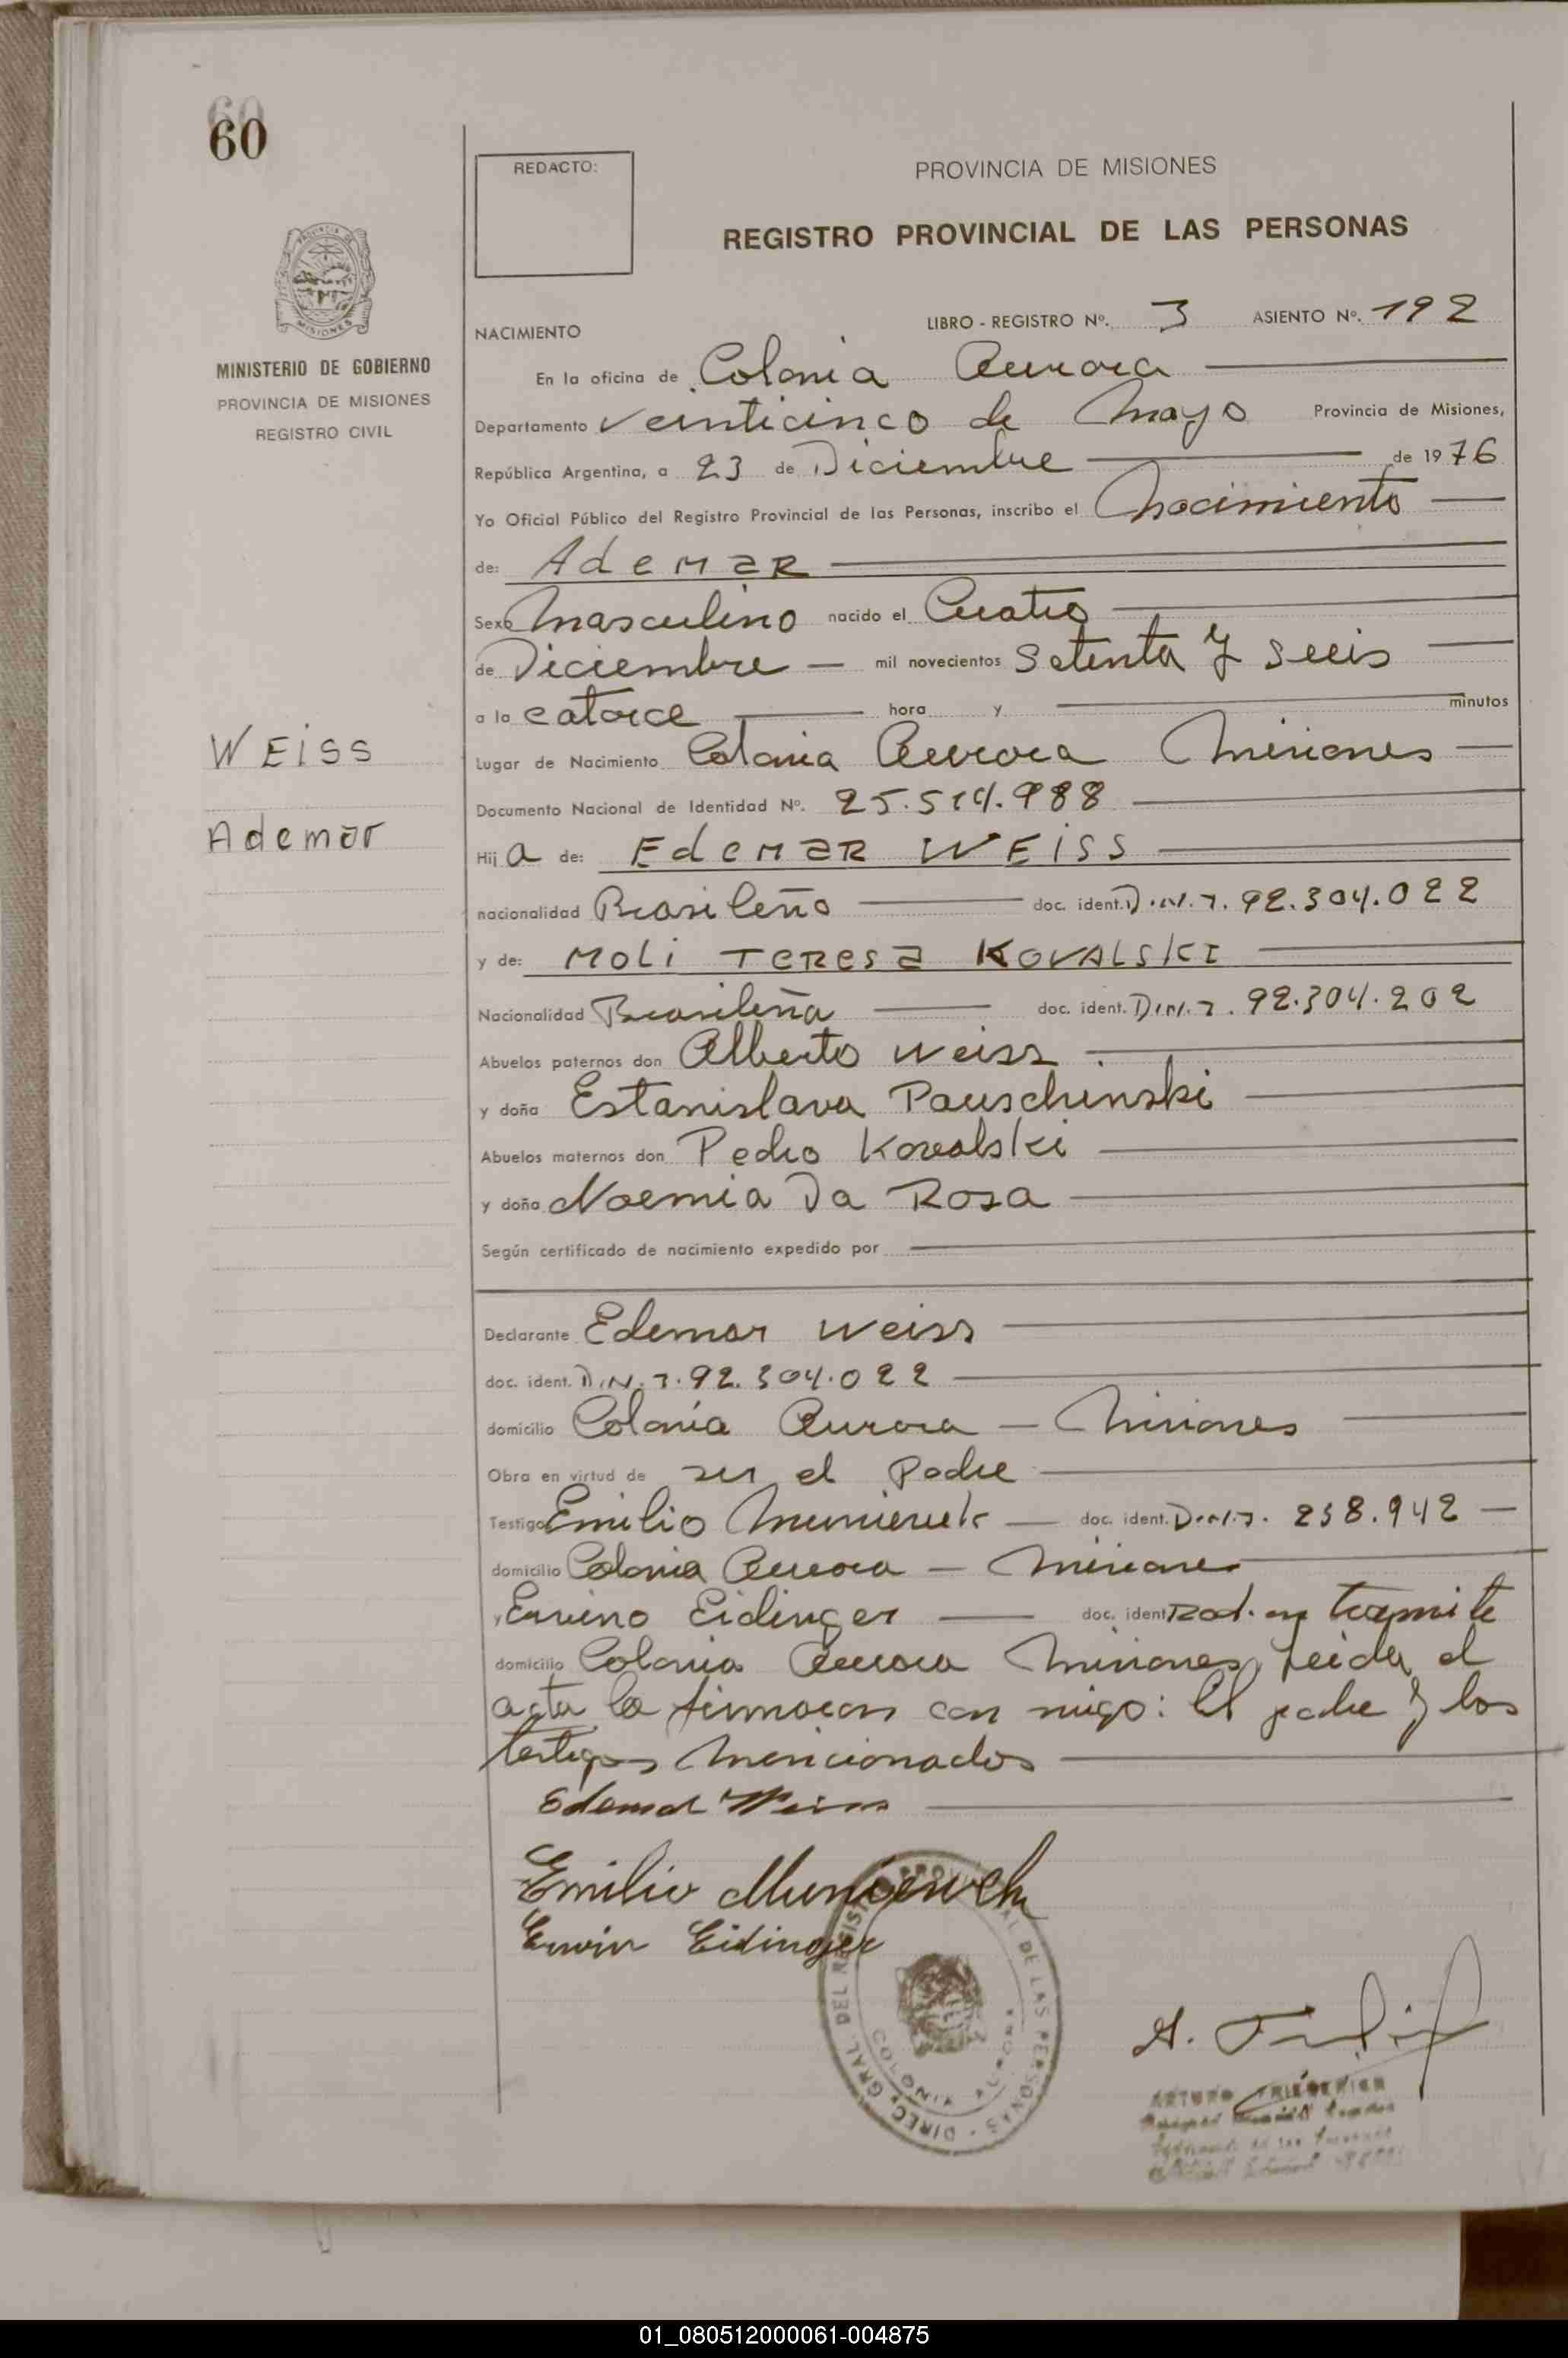 60
60
REDACTO:
PROVINCIA DE MISIONES
REGISTRO PROVINCIAL DE LAS PERSONAS
MISIONES
MINISTERIO DE GOBIERNO
PROVINCIA DE MISIONES
REGISTRO CIVIL
NACIMIENTO
LIBRO - REGISTRO Nº. 3 ASIENTO Nº. 192
En la oficina de Colonia Aurora
Departamento veinticinco de Mayo Provincia de Misiones,
República Argentina, a 23 de Diciembre de 1976
Yo Oficial Público del Registro Provincial de las Personas, inscribo el Nacimiento
de: Ademar
Sexo Masculino nacido el Cuatro
de Diciembre — mil novecientos Setenta y Seis
a la catorce hora y minutos
WEiSS
Lugar de Nacimiento Colonia Aurora Misiones
Documento Nacional de Identidad Nº. 25.514.988
Ademar
Hij a de: Edemar WEiSS
nacionalidad Brasileño doc. ident. D.N.I. 92.304.022
y de: Moli Teresa KOVALSKI
Nacionalidad Brasileña doc. ident. D.N.I. 92.304.202
Abuelos paternos don Alberto Weiss
y doña Estanislava Pauschinski
Abuelos maternos don Pedro Kovalski
y doña Noemia Da Rosa
Según certificado de nacimiento expedido por
Declarante Edemar Weiss
doc. ident. D.N.I. 92.304.022
domicilio Colonia Aurora — Misiones
Obra en virtud de ser el Padre
Testigo Emilio doc. ident. D.N.I. 258.942 —
domicilio Colonia Aurora — Misiones
y Ervino Eidinger doc. ident. Rad. en tramite
domicilio Colonia Aurora Misiones, Leida el
acta la firmaron con migo: El padre y los
testigos Mencionados
Edemar Weiss
Emilio
Erwin Eidinger
DIREC. GRAL. DEL REGISTRO PROVINCIAL DE LAS PERSONAS
COLONIA AURORA
ARTURO
01_080512000061-004875